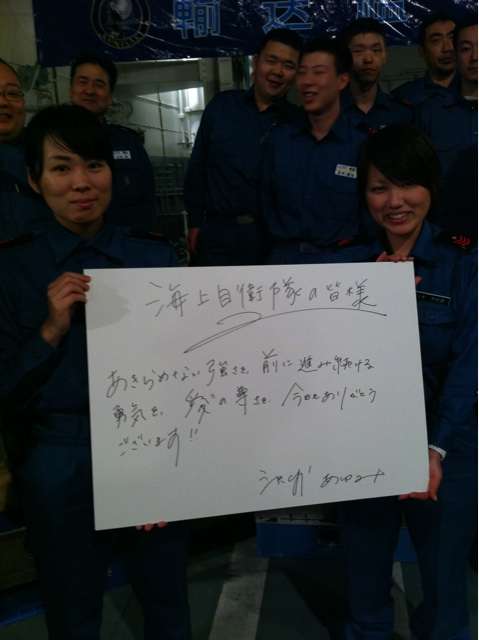 輸送
海上自衛隊の皆様
あきらめない強さを、前に進み続ける
勇気を、愛の尊さを、今日もありがとう
ございます!!